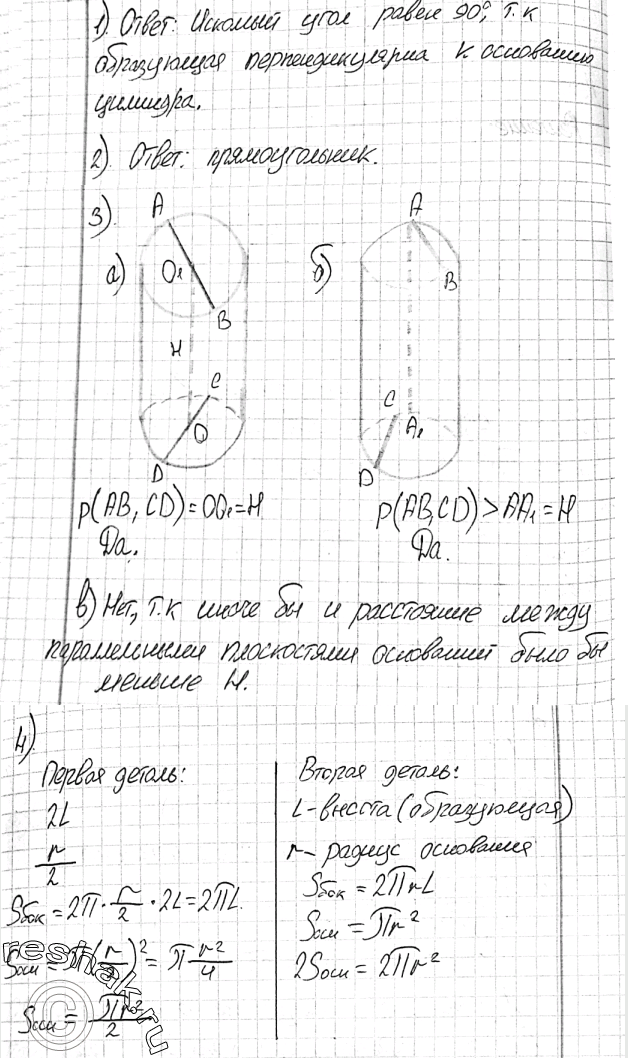 1). Ответ: Искомый угол равен 90°, т.к
образующая перпендикулярна к основанию
цилиндра.
2). Ответ: прямоугольник.
3).
а)
A
O₁
B
H
C
O
D
б)
A
B
C
A₁
D
ρ(AB, CD) = OO₁ = H
Да.
ρ(AB, CD) > AA₁ = H
Да.
в) Нет, т.к иначе бы и расстояние между
параллельными плоскостями оснований было бы
меньше H.
4).
Первая деталь:
2L
r/2
Sбок = 2π · r/2 · 2L = 2πL.
Sосн = π(r/2)² = π r²/4
Sосн = πr²/2
Вторая деталь:
L - высота (образующая)
r - радиус основания
Sбок = 2πrL
Sосн = πr²
2Sосн = 2πr²
reshak.ru
©